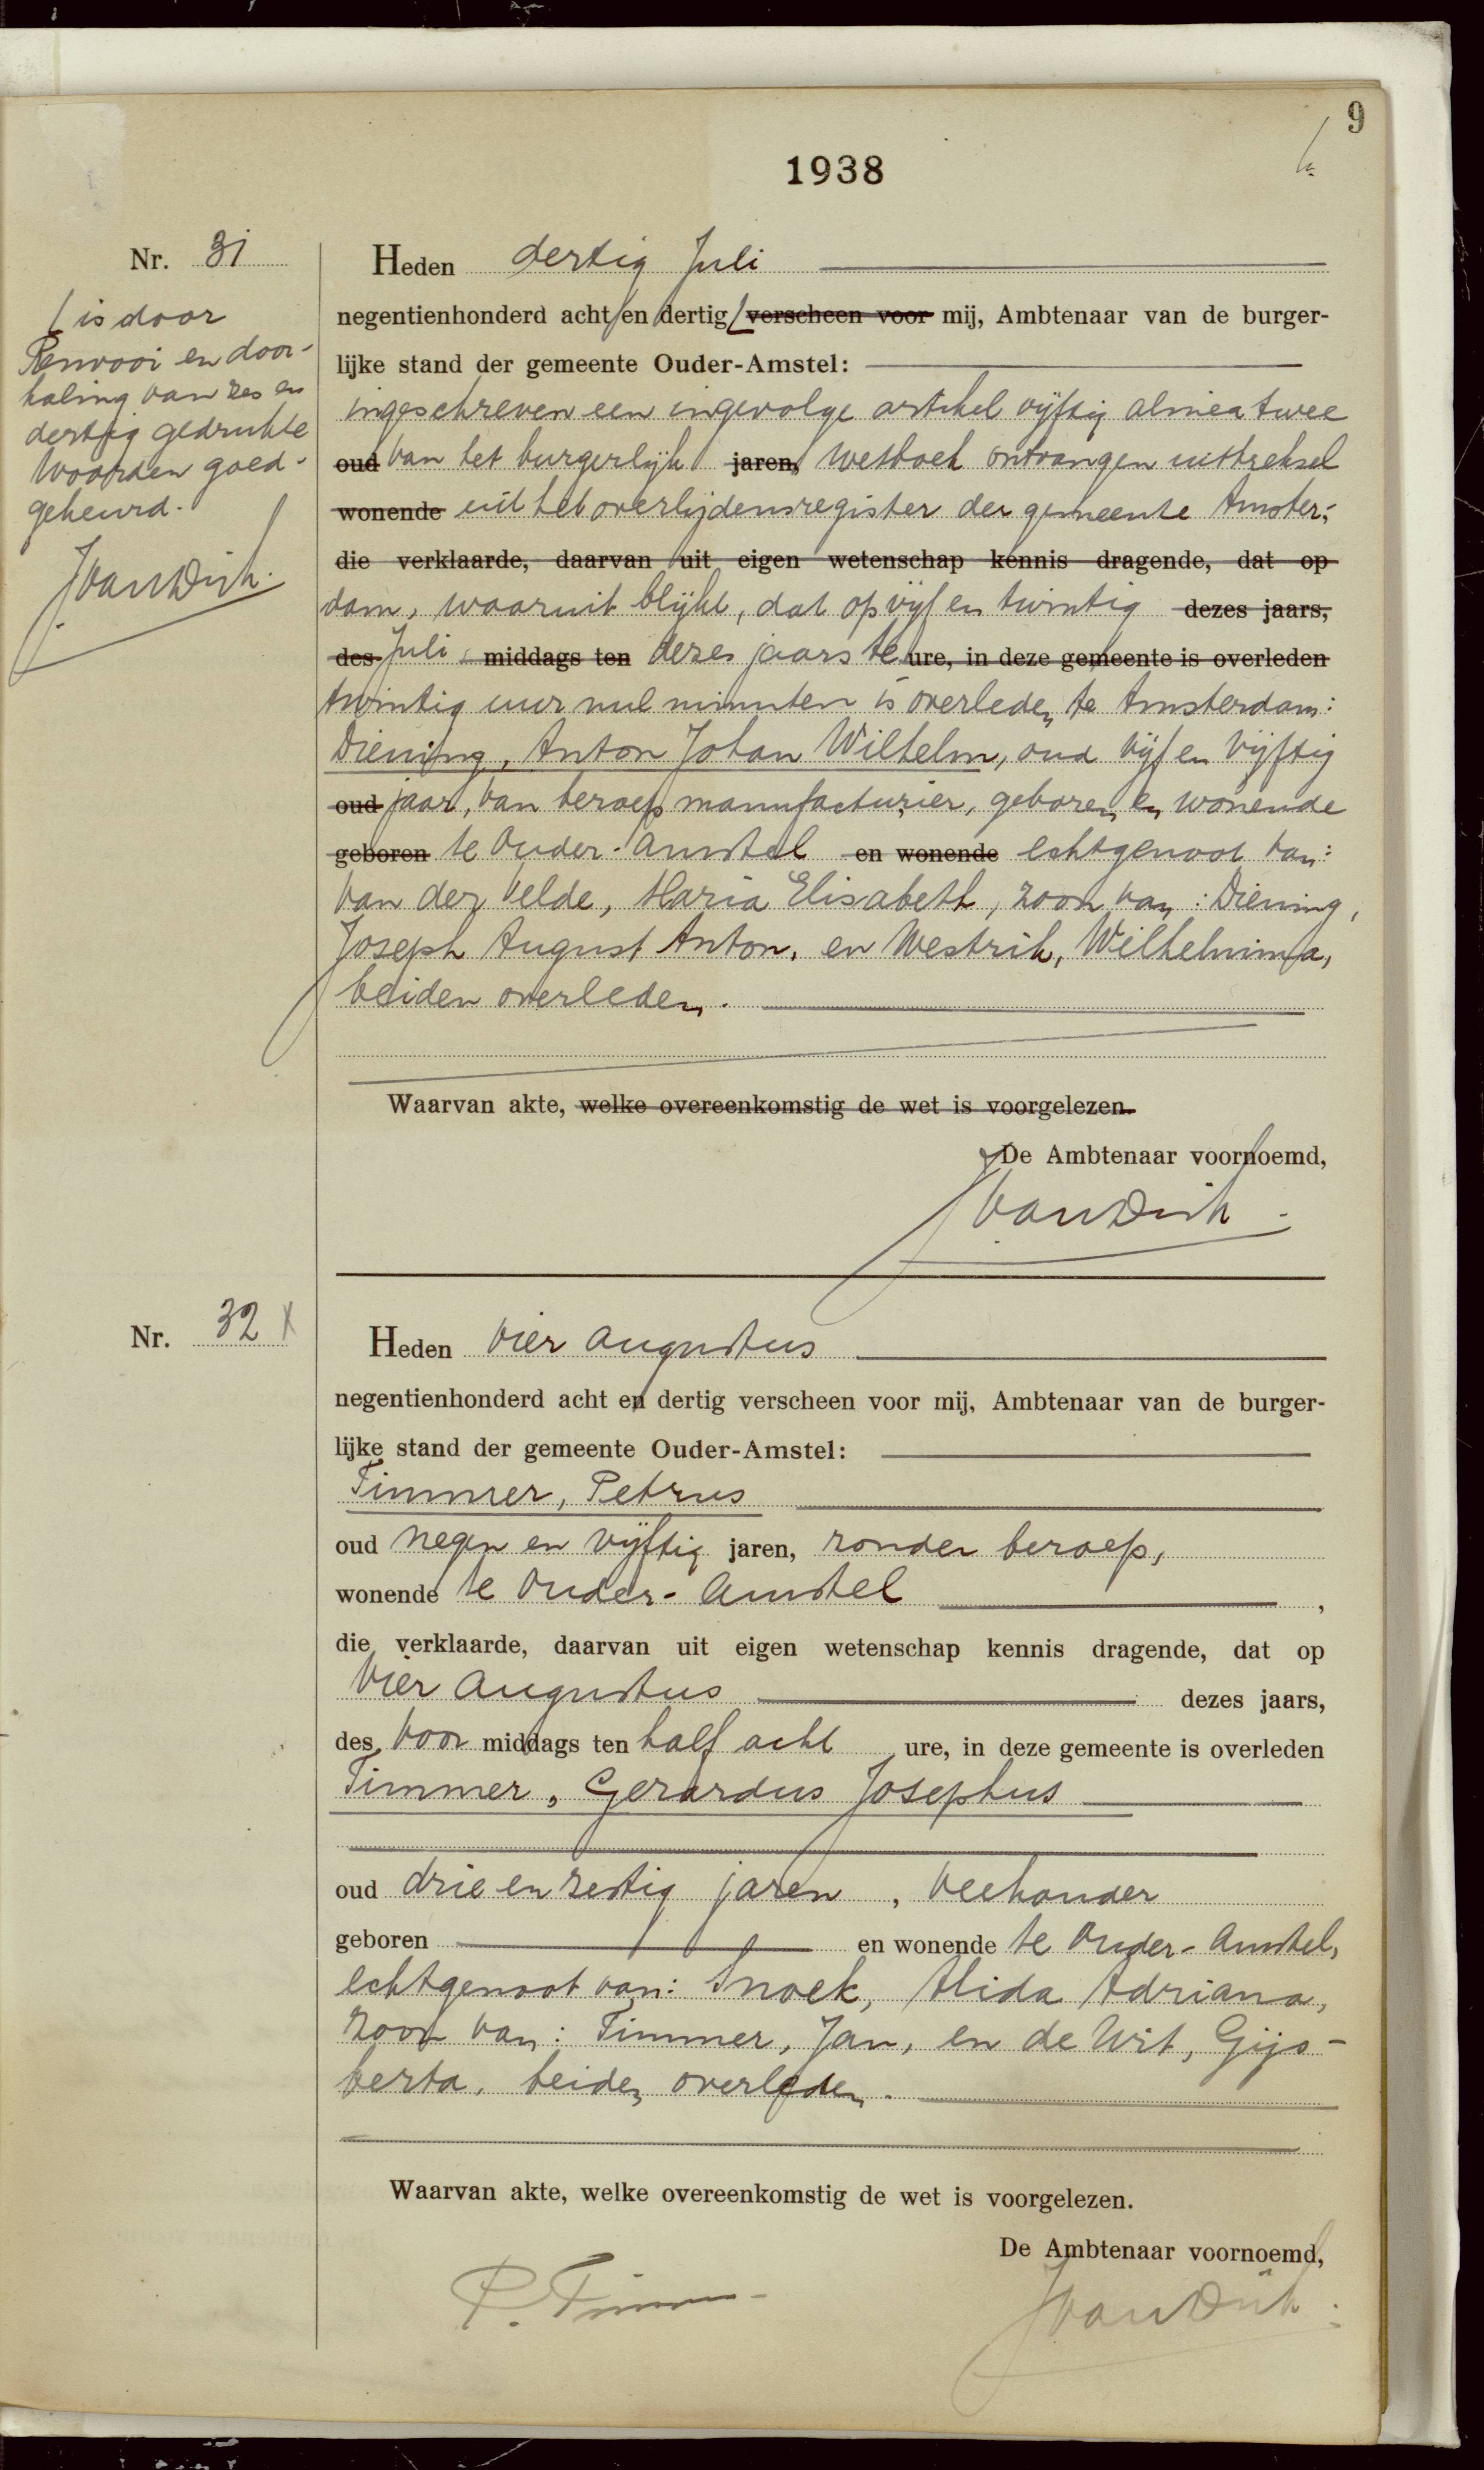 9
1938
Nr. 31
Heden dertig Juli
negentienhonderd acht en dertig ⌊ verscheen voor mij, Ambtenaar van de burger-
lijke stand der gemeente Ouder-Amstel:
ingeschreven een ingevolge artikel vijftig alinea twee
oud van het burgerlijk jaren, wetboek ontvangen uittreksel
wonende uit het overlijdensregister der gemeente Amster-
die verklaarde, daarvan uit eigen wetenschap kennis dragende, dat op
dam, waaruit blijkt, dat op vijf en twintig dezes jaars,
des Juli middags ten dezes jaars te ure, in deze gemeente is overleden
twintig uur nul minuten is overleden te Amsterdam:
Diening, Anton Johan Wilhelm, oud vijf en vijftig
oud jaar, van beroep manufacturier, geboren en wonende
geboren te Ouder-Amstel en wonende echtgenoot van:
van der Velde, Maria Elisabeth, zoon van: Diening,
Joseph August Anton, en Westrik, Wilhelmina,
beiden overleden.
Waarvan akte, welke overeenkomstig de wet is voorgelezen.
De Ambtenaar voornoemd,
JvanDijk
⌊ is door
Renvooi en door-
haling van zes en
dertig gedrukte
woorden goed-
gekeurd.
JvanDijk.
Nr. 32 X
Heden vier Augustus
negentienhonderd acht en dertig verscheen voor mij, Ambtenaar van de burger-
lijke stand der gemeente Ouder-Amstel:
Timmer, Petrus
oud negen en vijftig jaren, zonder beroep,
wonende te Ouder-Amstel ,
die verklaarde, daarvan uit eigen wetenschap kennis dragende, dat op
vier Augustus dezes jaars,
des voor middags ten half acht ure, in deze gemeente is overleden
Timmer, Gerardus Josephus
oud drie en zestig jaren, veehouder
geboren en wonende te Ouder-Amstel,
echtgenoot van: Snoek, Alida Adriana,
zoon van: Timmer, Jan, en de Wit, Gijs-
berta, beiden overleden.
Waarvan akte, welke overeenkomstig de wet is voorgelezen.
De Ambtenaar voornoemd,
P. Timmer
JvanDijk.